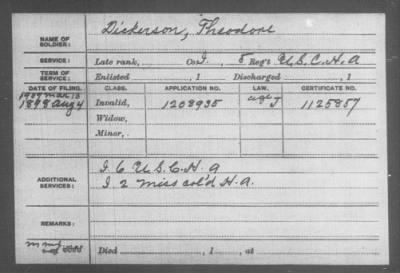 NAME OF SOLDIER: Dickerson, Theodore
SERVICE: Late rank, Co. I, 5 Reg't U.S.C.H.A
TERM OF SERVICE: Enlisted , 1 Discharged , 1
DATE OF FILING. CLASS. APPLICATION NO. LAW. CERTIFICATE NO.
1909 Mar 13
1898 Aug 4 Invalid, 1208935 J 1125857
Widow,
Minor,
ADDITIONAL SERVICES: I. 6 U.S.C.H.A
I 2 Miss col'd H.A.
REMARKS:
Died , 1 , at